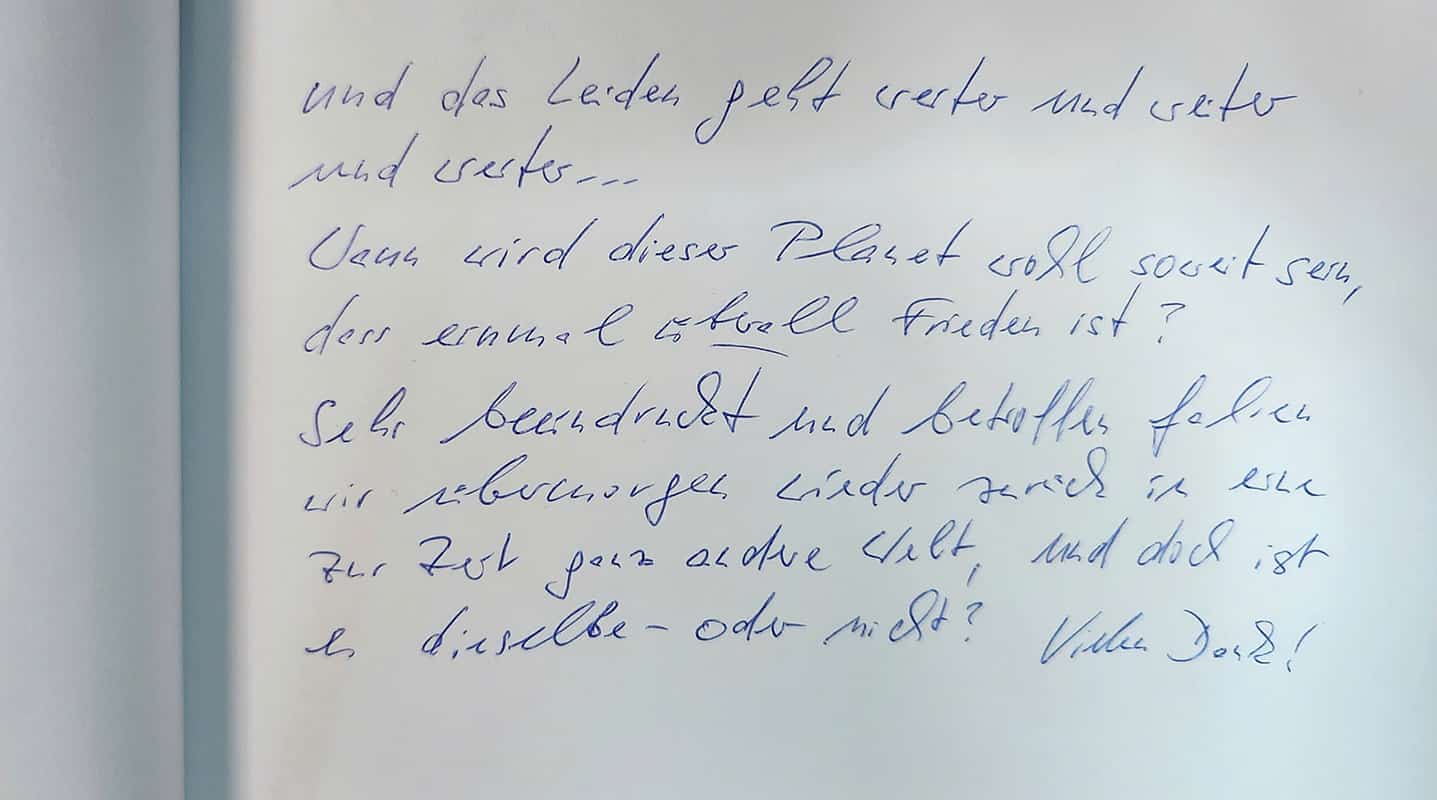 und das Leiden geht weiter und weiter
und weiter...
Wann wird dieser Planet wohl soweit sein,
dass einmal überall Frieden ist?
Sehr beeindruckt und betroffen fahren
wir übermorgen wieder zurück in eine
zur Zeit ganz andere Welt, und doch ist
es dieselbe - oder nicht? Vielen Dank!